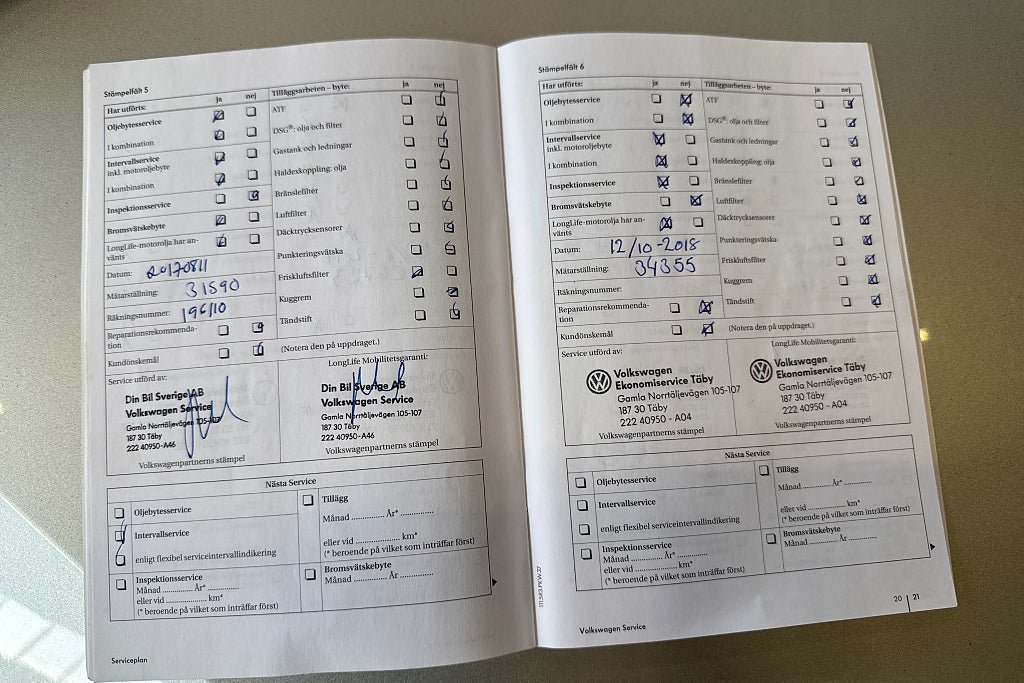 Stämpelfält 5
Har utförts: ja nej
Oljebytesservice
I kombination
Intervallservice
inkl. motoroljebyte
I kombination
Inspektionsservice
Bromsvätskebyte
LongLife-motorolja har an-
vänts
Datum: 20170811
Mätarställning: 31590
Räkningsnummer: 196110
Reparationsrekommenda-
tion
Kundönskemål
Tilläggsarbeten – byte: ja nej
ATF
DSG®: olja och filter
Gastank och ledningar
Haldexkoppling: olja
Bränslefilter
Luftfilter
Däcktrycksensorer
Punkteringsvätska
Friskluftsfilter
Kuggrem
Tändstift
(Notera den på uppdraget.)
Service utförd av:
Din Bil Sverige AB
Volkswagen Service
Gamla Norrtäljevägen 105-107
187 30 Täby
222 40950 -A46
Volkswagenpartnerns stämpel
LongLife Mobilitetsgaranti:
Din Bil Sverige AB
Volkswagen Service
Gamla Norrtäljevägen 105-107
187 30 Täby
222 40950 -A46
Volkswagenpartnerns stämpel
Nästa Service
Oljebytesservice
Intervallservice
enligt flexibel serviceintervallindikering
Inspektionsservice
Månad .............. År* ..............
eller vid .................. km*
(* beroende på vilket som inträffar först)
Tillägg
Månad .............. År* ..............
eller vid .................. km*
(* beroende på vilket som inträffar först)
Bromsvätskebyte
Månad .............. År ..............
Serviceplan
Stämpelfält 6
Har utförts: ja nej
Oljebytesservice
I kombination
Intervallservice
inkl. motoroljebyte
I kombination
Inspektionsservice
Bromsvätskebyte
LongLife-motorolja har an-
vänts
Datum: 12/10-2018
Mätarställning: 34355
Räkningsnummer:
Reparationsrekommenda-
tion
Kundönskemål
Tilläggsarbeten – byte: ja nej
ATF
DSG®: olja och filter
Gastank och ledningar
Haldexkoppling: olja
Bränslefilter
Luftfilter
Däcktrycksensorer
Punkteringsvätska
Friskluftsfilter
Kuggrem
Tändstift
(Notera den på uppdraget.)
Service utförd av:
Volkswagen
Ekonomiservice Täby
Gamla Norrtäljevägen 105-107
187 30 Täby
222 40950 - A04
Volkswagenpartnerns stämpel
LongLife Mobilitetsgaranti:
Volkswagen
Ekonomiservice Täby
Gamla Norrtäljevägen 105-107
187 30 Täby
222 40950 - A04
Volkswagenpartnerns stämpel
Nästa Service
Oljebytesservice
Intervallservice
enligt flexibel serviceintervallindikering
Inspektionsservice
Månad .............. År* ..............
eller vid .................. km*
(* beroende på vilket som inträffar först)
Tillägg
Månad .............. År* ..............
eller vid .................. km*
(* beroende på vilket som inträffar först)
Bromsvätskebyte
Månad .............. År ..............
Volkswagen Service
20 | 21